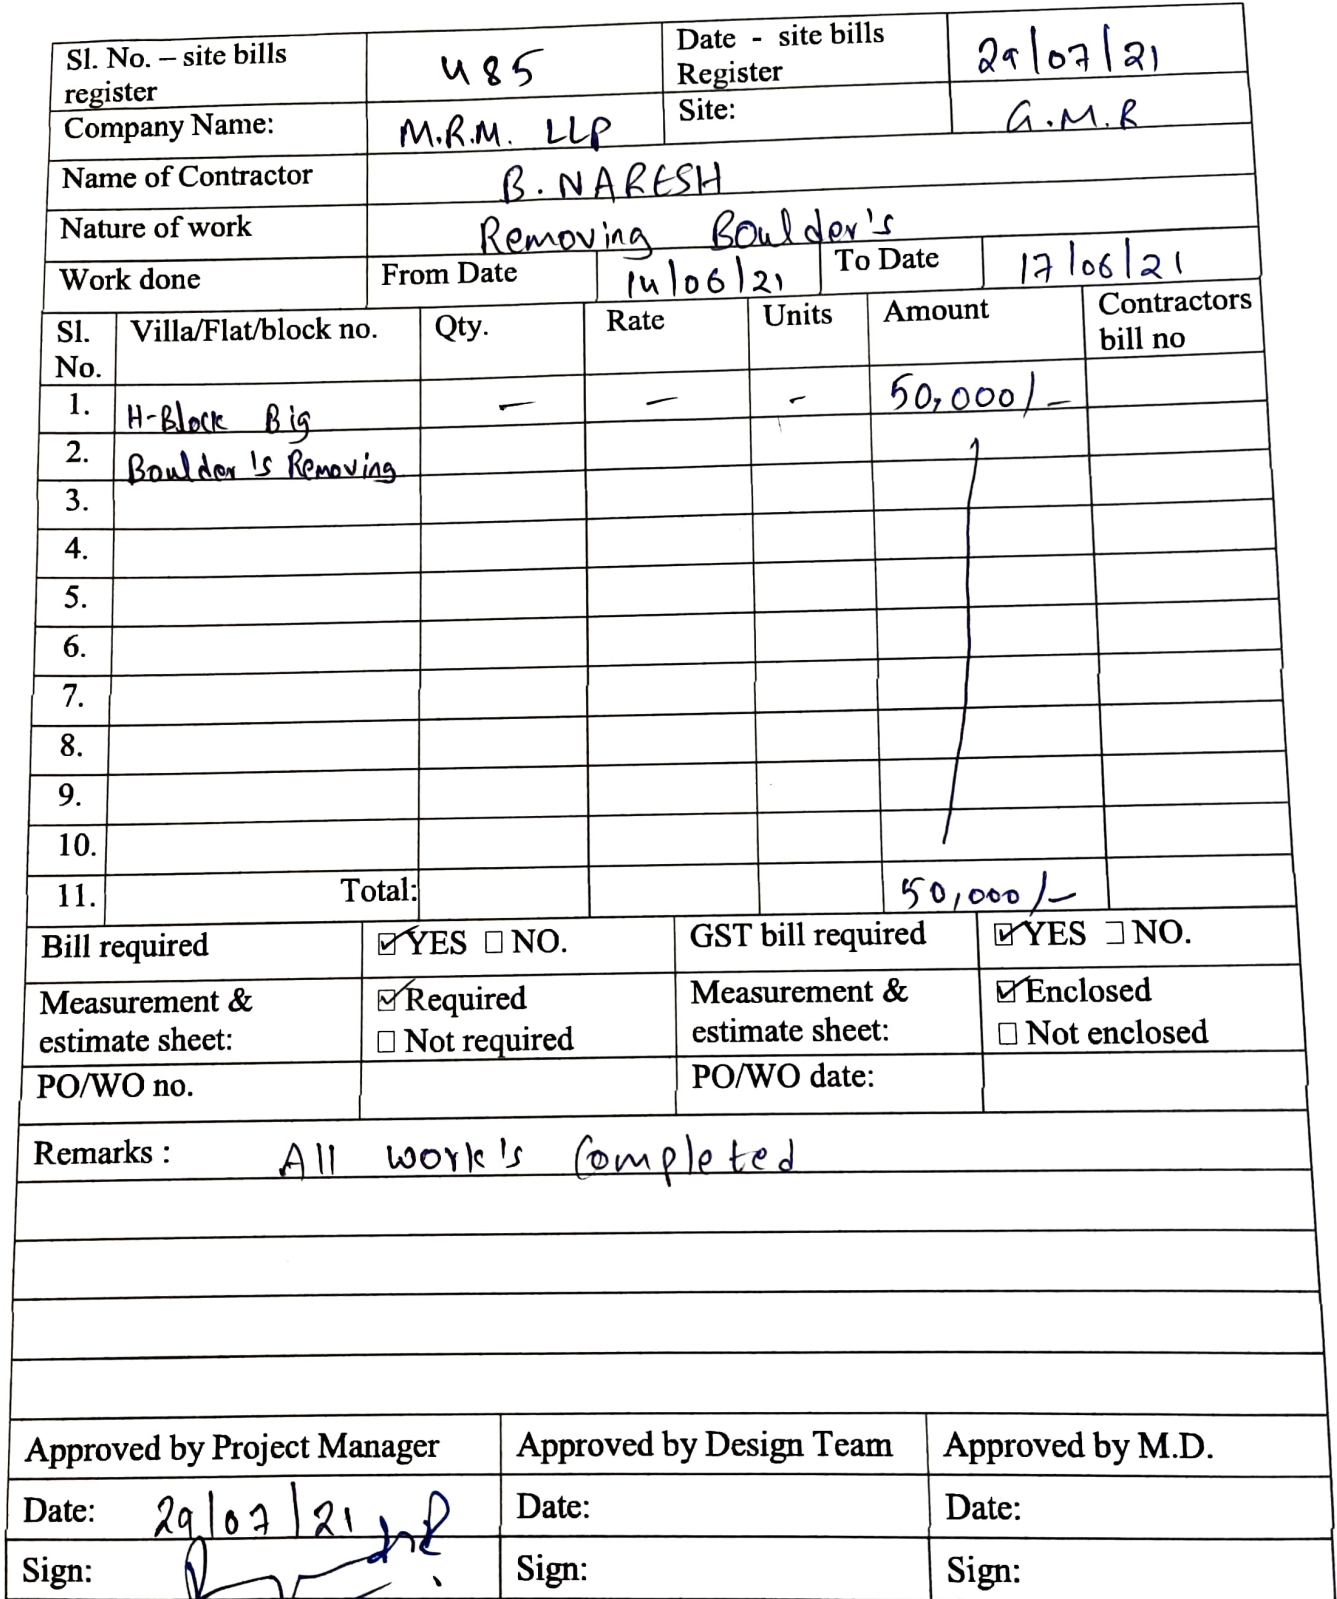 Sl. No. – site bills register 485 Date - site bills Register 29/07/21
Company Name: M.R.M. LLP Site: G.M.R
Name of Contractor B. NARESH
Nature of work Removing Boulder's
Work done From Date 14/06/21 To Date 17/06/21
Sl. No. Villa/Flat/block no. Qty. Rate Units Amount Contractors bill no
1. H-Block Big – – - 50,000/-
2. Boulder's Removing
3.
4.
5.
6.
7.
8.
9.
10.
11. Total: 50,000/-
Bill required ☑ YES ☐ NO. GST bill required ☑ YES ☐ NO.
Measurement & estimate sheet: ☑ Required ☐ Not required Measurement & estimate sheet: ☑ Enclosed ☐ Not enclosed
PO/WO no. PO/WO date:
Remarks : All work's Completed
Approved by Project Manager Approved by Design Team Approved by M.D.
Date: 29/07/21 Date: Date:
Sign: Sign: Sign: